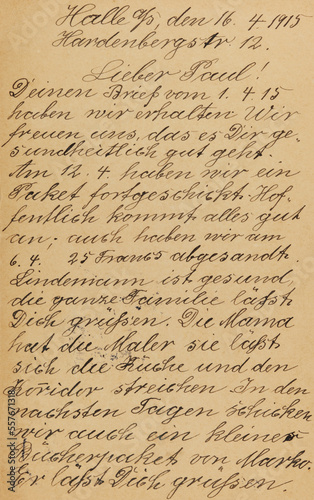 Halle a/S, den 16. 4 1915
Hardenbergstr. 12.
Lieber Paul!
Deinen Brief vom 1. 4. 15
haben wir erhalten Wir
freuen uns, das es Dir ge-
sundheitlich gut geht.
Am 12. 4. haben wir ein
Paket fortgeschickt. Hof-
fentlich kommt alles gut
an; auch haben wir am
6. 4. 25 Francs abgesandt.
Lindemann ist gesund,
die ganze Familie läßt
Dich grüßen. Die Mama
hat die Maler sie läßt
sich die Küche und den
Koridor streichen In den
nächsten Tagen schicken
wir auch ein kleines
Bücherpaket von Marko.
Er läßt Dich grüßen.
Adobe Stock | #557671318
Adobe Stock